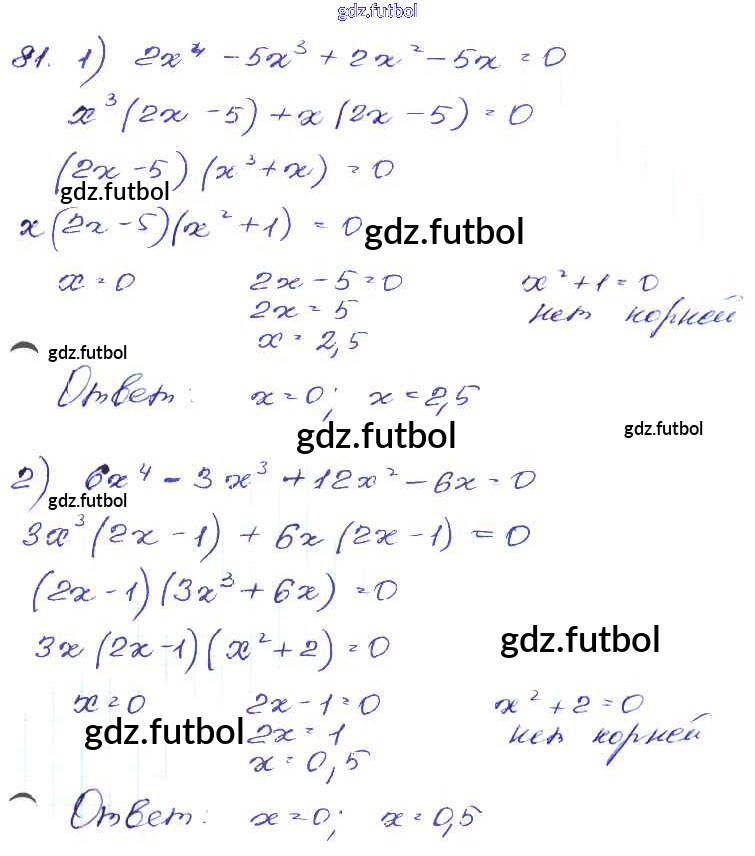 gdz.futbol
81. 1) 2x⁴ - 5x³ + 2x² - 5x = 0
x³(2x - 5) + x(2x - 5) = 0
(2x - 5)(x³ + x) = 0
gdz.futbol
x(2x - 5)(x² + 1) = 0 gdz.futbol
x = 0 2x - 5 = 0 x² + 1 = 0
2x = 5 нет корней
x = 2,5
gdz.futbol
Ответ: x = 0; x = 2,5
gdz.futbol gdz.futbol
2) 6x⁴ - 3x³ + 12x² - 6x = 0
gdz.futbol
3x³(2x - 1) + 6x(2x - 1) = 0
(2x - 1)(3x³ + 6x) = 0
gdz.futbol
3x(2x - 1)(x² + 2) = 0
x = 0 2x - 1 = 0 x² + 2 = 0
gdz.futbol 2x = 1 нет корней
x = 0,5
Ответ: x = 0; x = 0,5